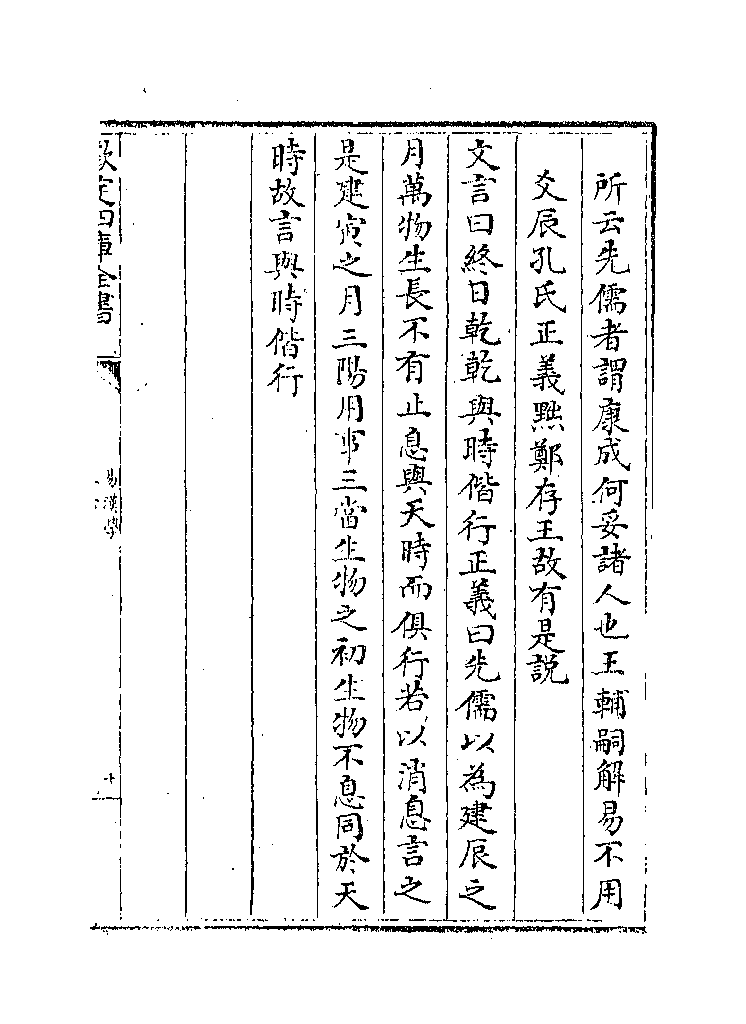 所云先儒者謂康成何妥諸人也王輔嗣解易不用
爻辰孔氏正義黜鄭存王故有是説
文言曰終日乾乾與時偕行正義曰先儒以為建辰之
月萬物生長不有止息與天時而俱行若以消息言之
是建寅之月三陽用事三當生物之初生物不息同於天
時故言與時偕行
欽定四庫全書
易漢學
十